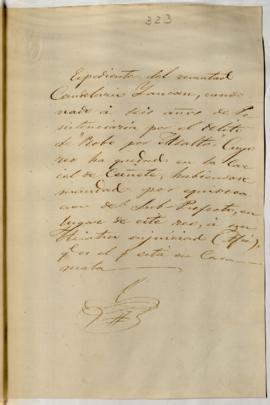 323
Expediente del rematad
Candelario Laucan, conde
nado á seis años de Pe
nitenciaría por el delito
de Robo por Asalto, Cuyo
reo ha quedad en la Car
cel de Cañete, habiendose
mandad por equivoca
cion del Sub-Prefecto, en
lugar de este reo, á un
enjuiciad
q. es el q. está en Casa
mata